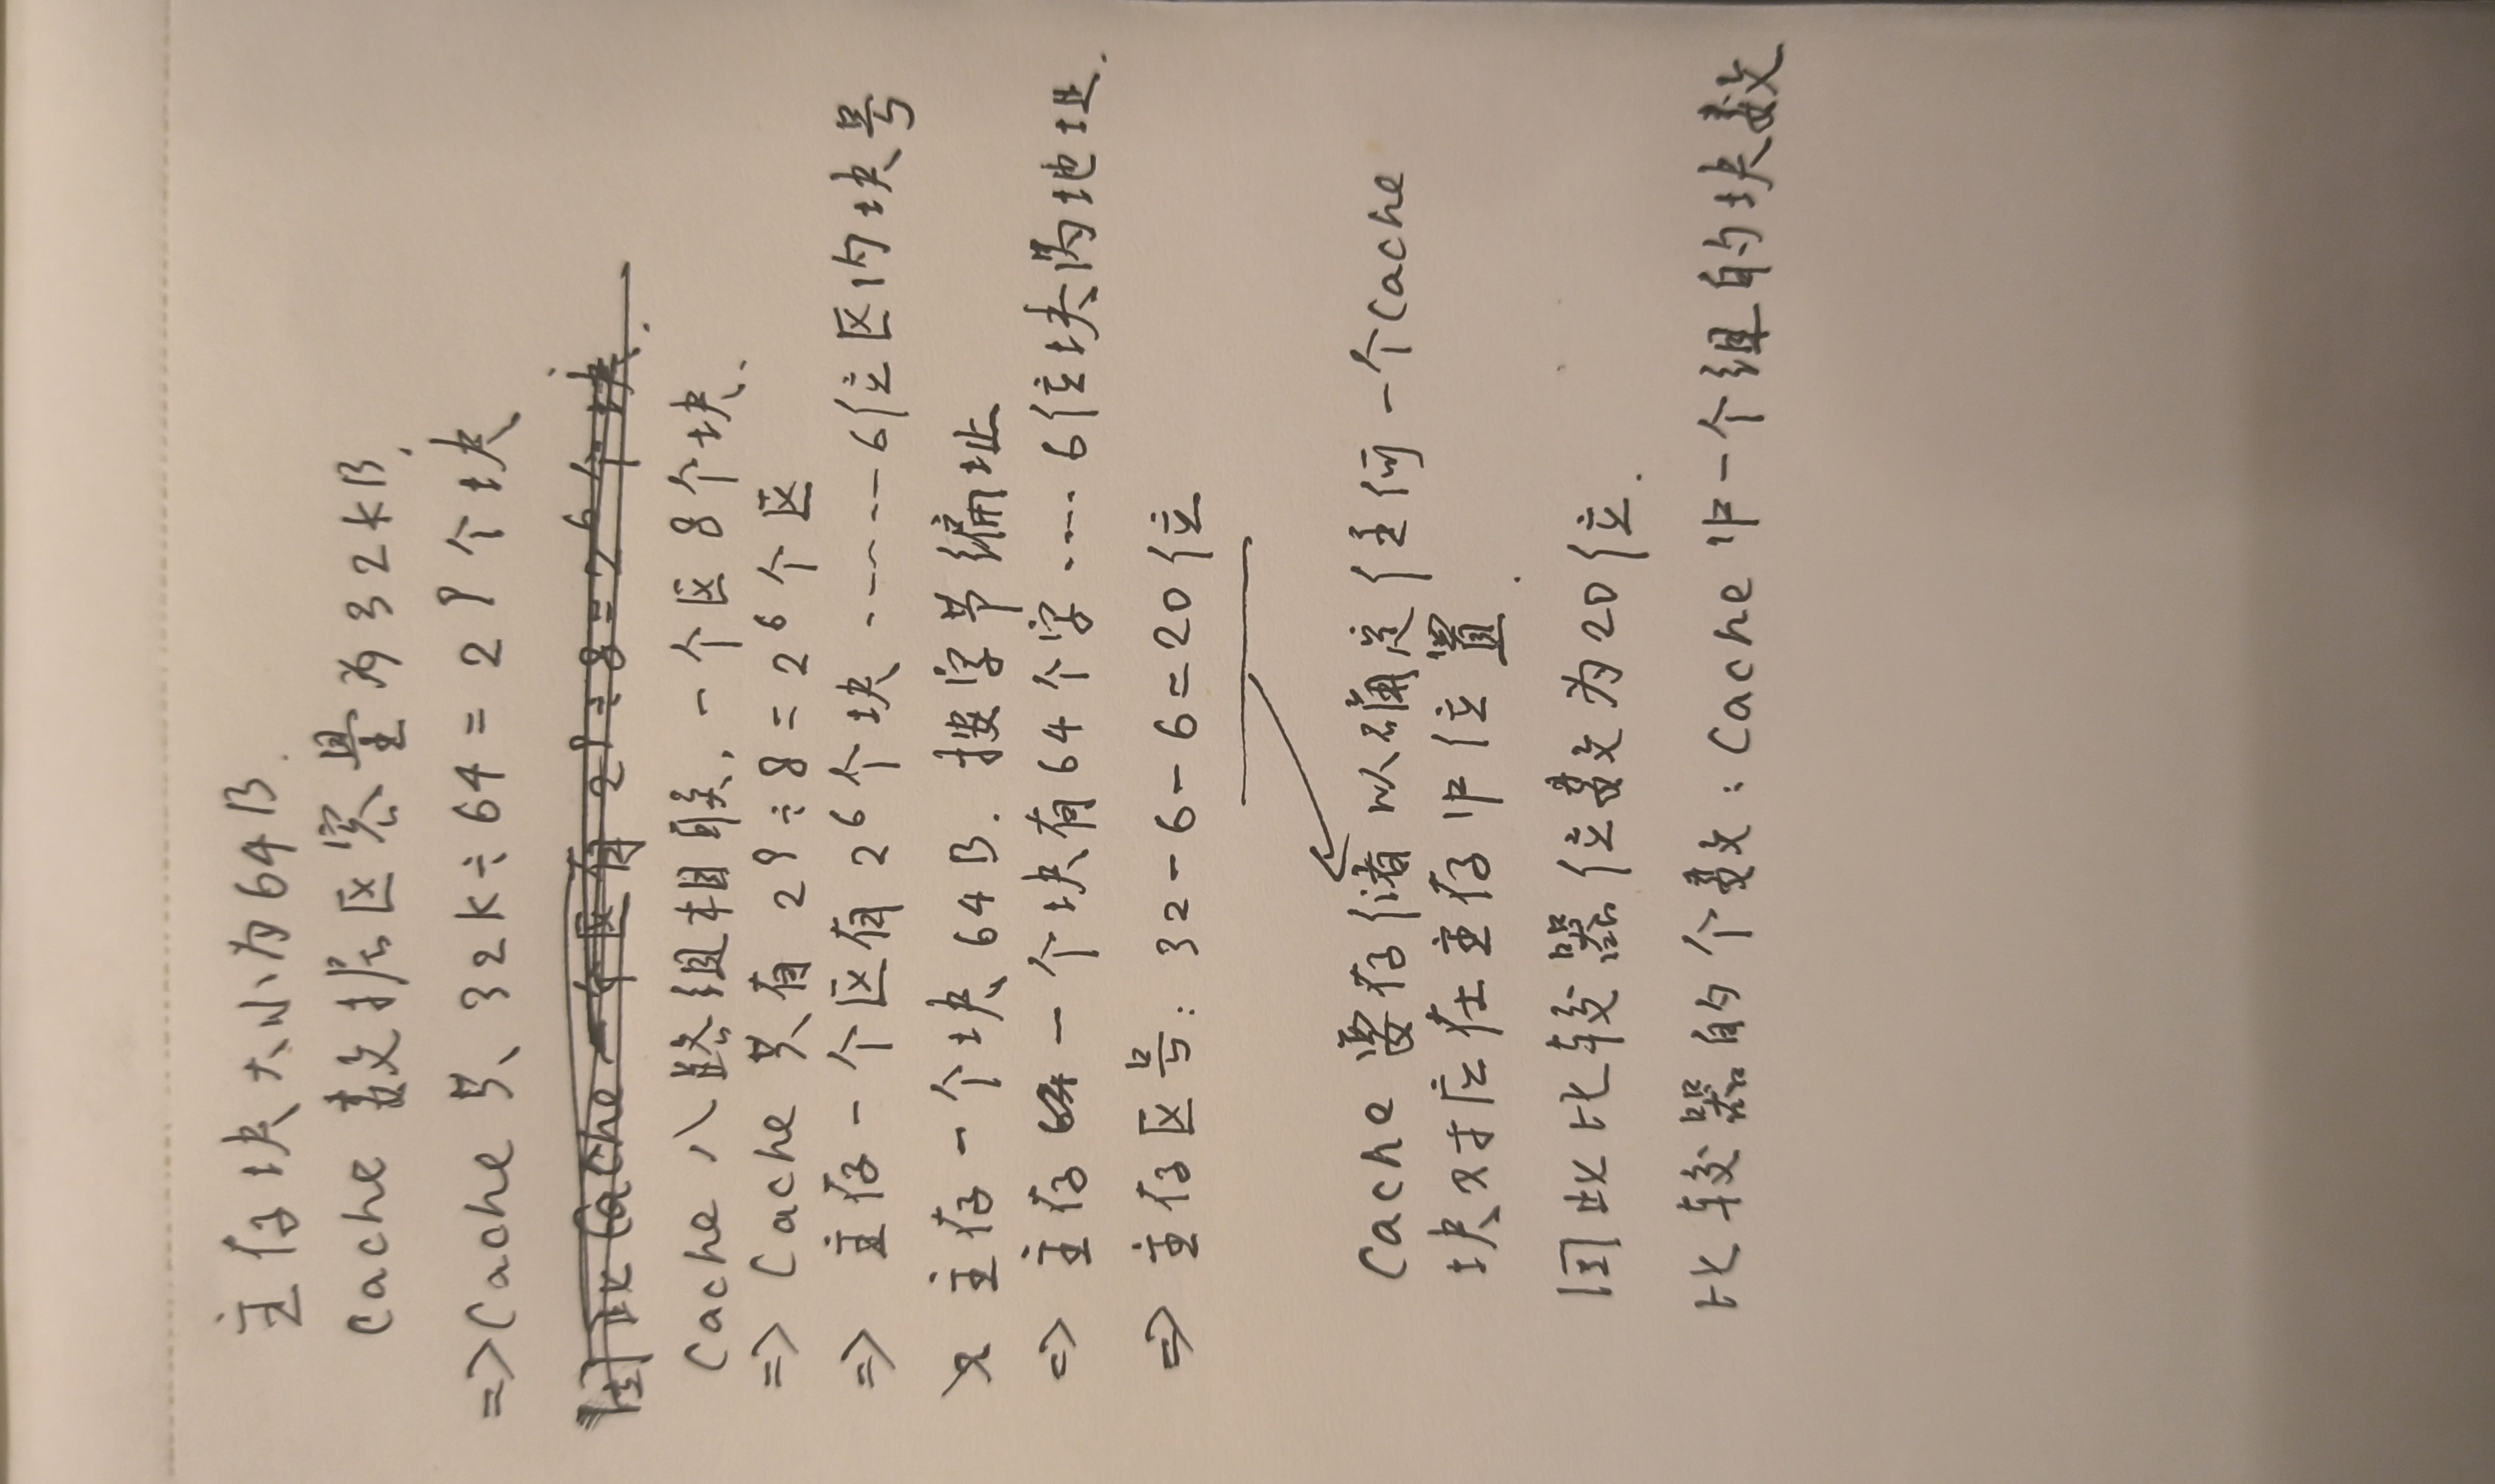 主存块大小为64B.
Cache 数据区容量为32KB.
=>Cache 共 32K÷64=2⁹个块
因此Cache一个区有2⁹÷8=2⁶个块.
Cache 八路组相联,一个区8个块.
=> Cache 共有 2⁹÷8=2⁶个区
=> 主存一个区有2⁶个块 ······ 6位区内块号
又 主存一个块64B. 按字节编址
=> 主存一个块有64个字 ···· 6位块内地址.
=> 主存区号: 32-6-6=20位
Cache 要存储以确定任何一个Cache
块对应在主存中位置.
因此比较器位数为20位.
比较器的个数: Cache中一个组的块数